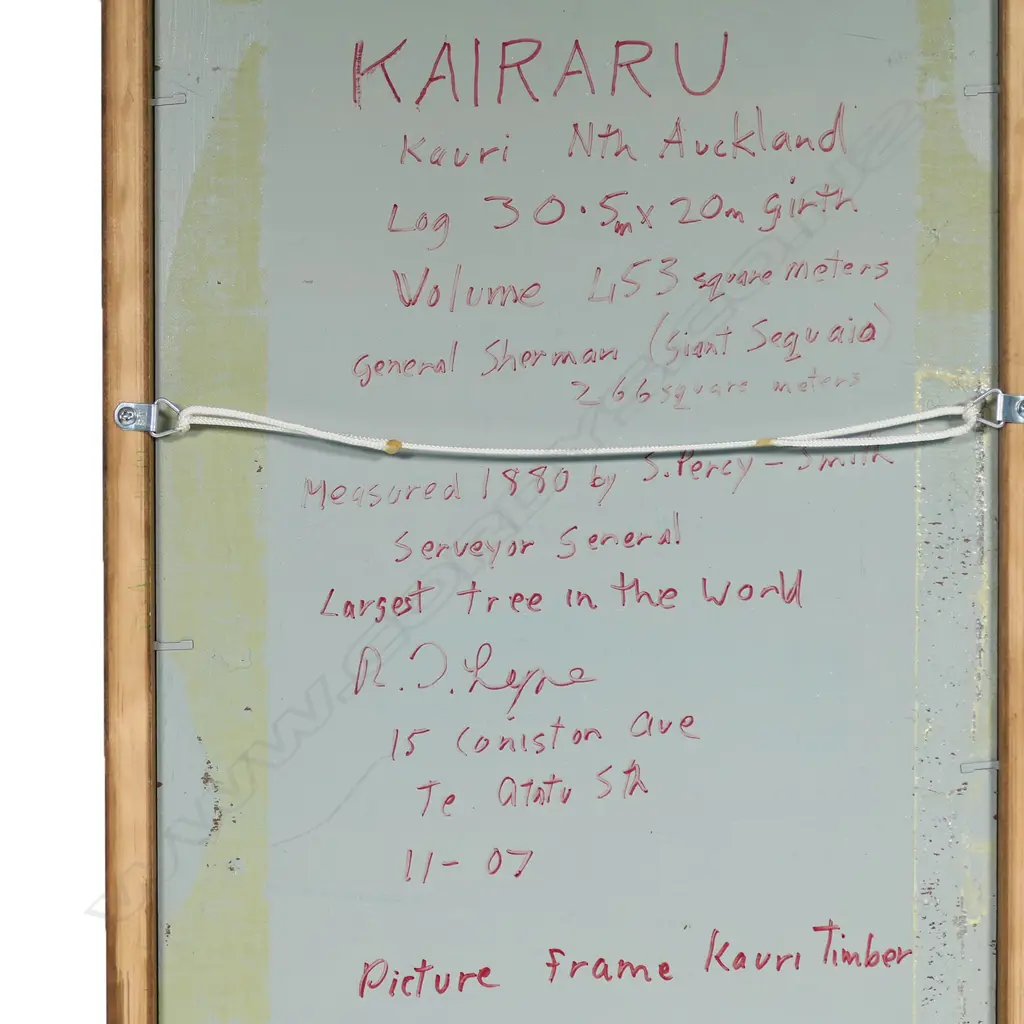 KAIRARU
Kauri Nth Auckland
Log 30.5m x 20m girth
Volume 453 square meters
general Sherman (Giant Sequaia)
266 square meters
Measured 1880 by S. Percy - Smith
Serveyor General
Largest tree in the World
R.J.
15 Coniston Ave
Te Atatu Sth
11-07
Picture frame Kauri Timber